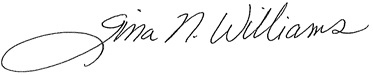 Gina N. Williams